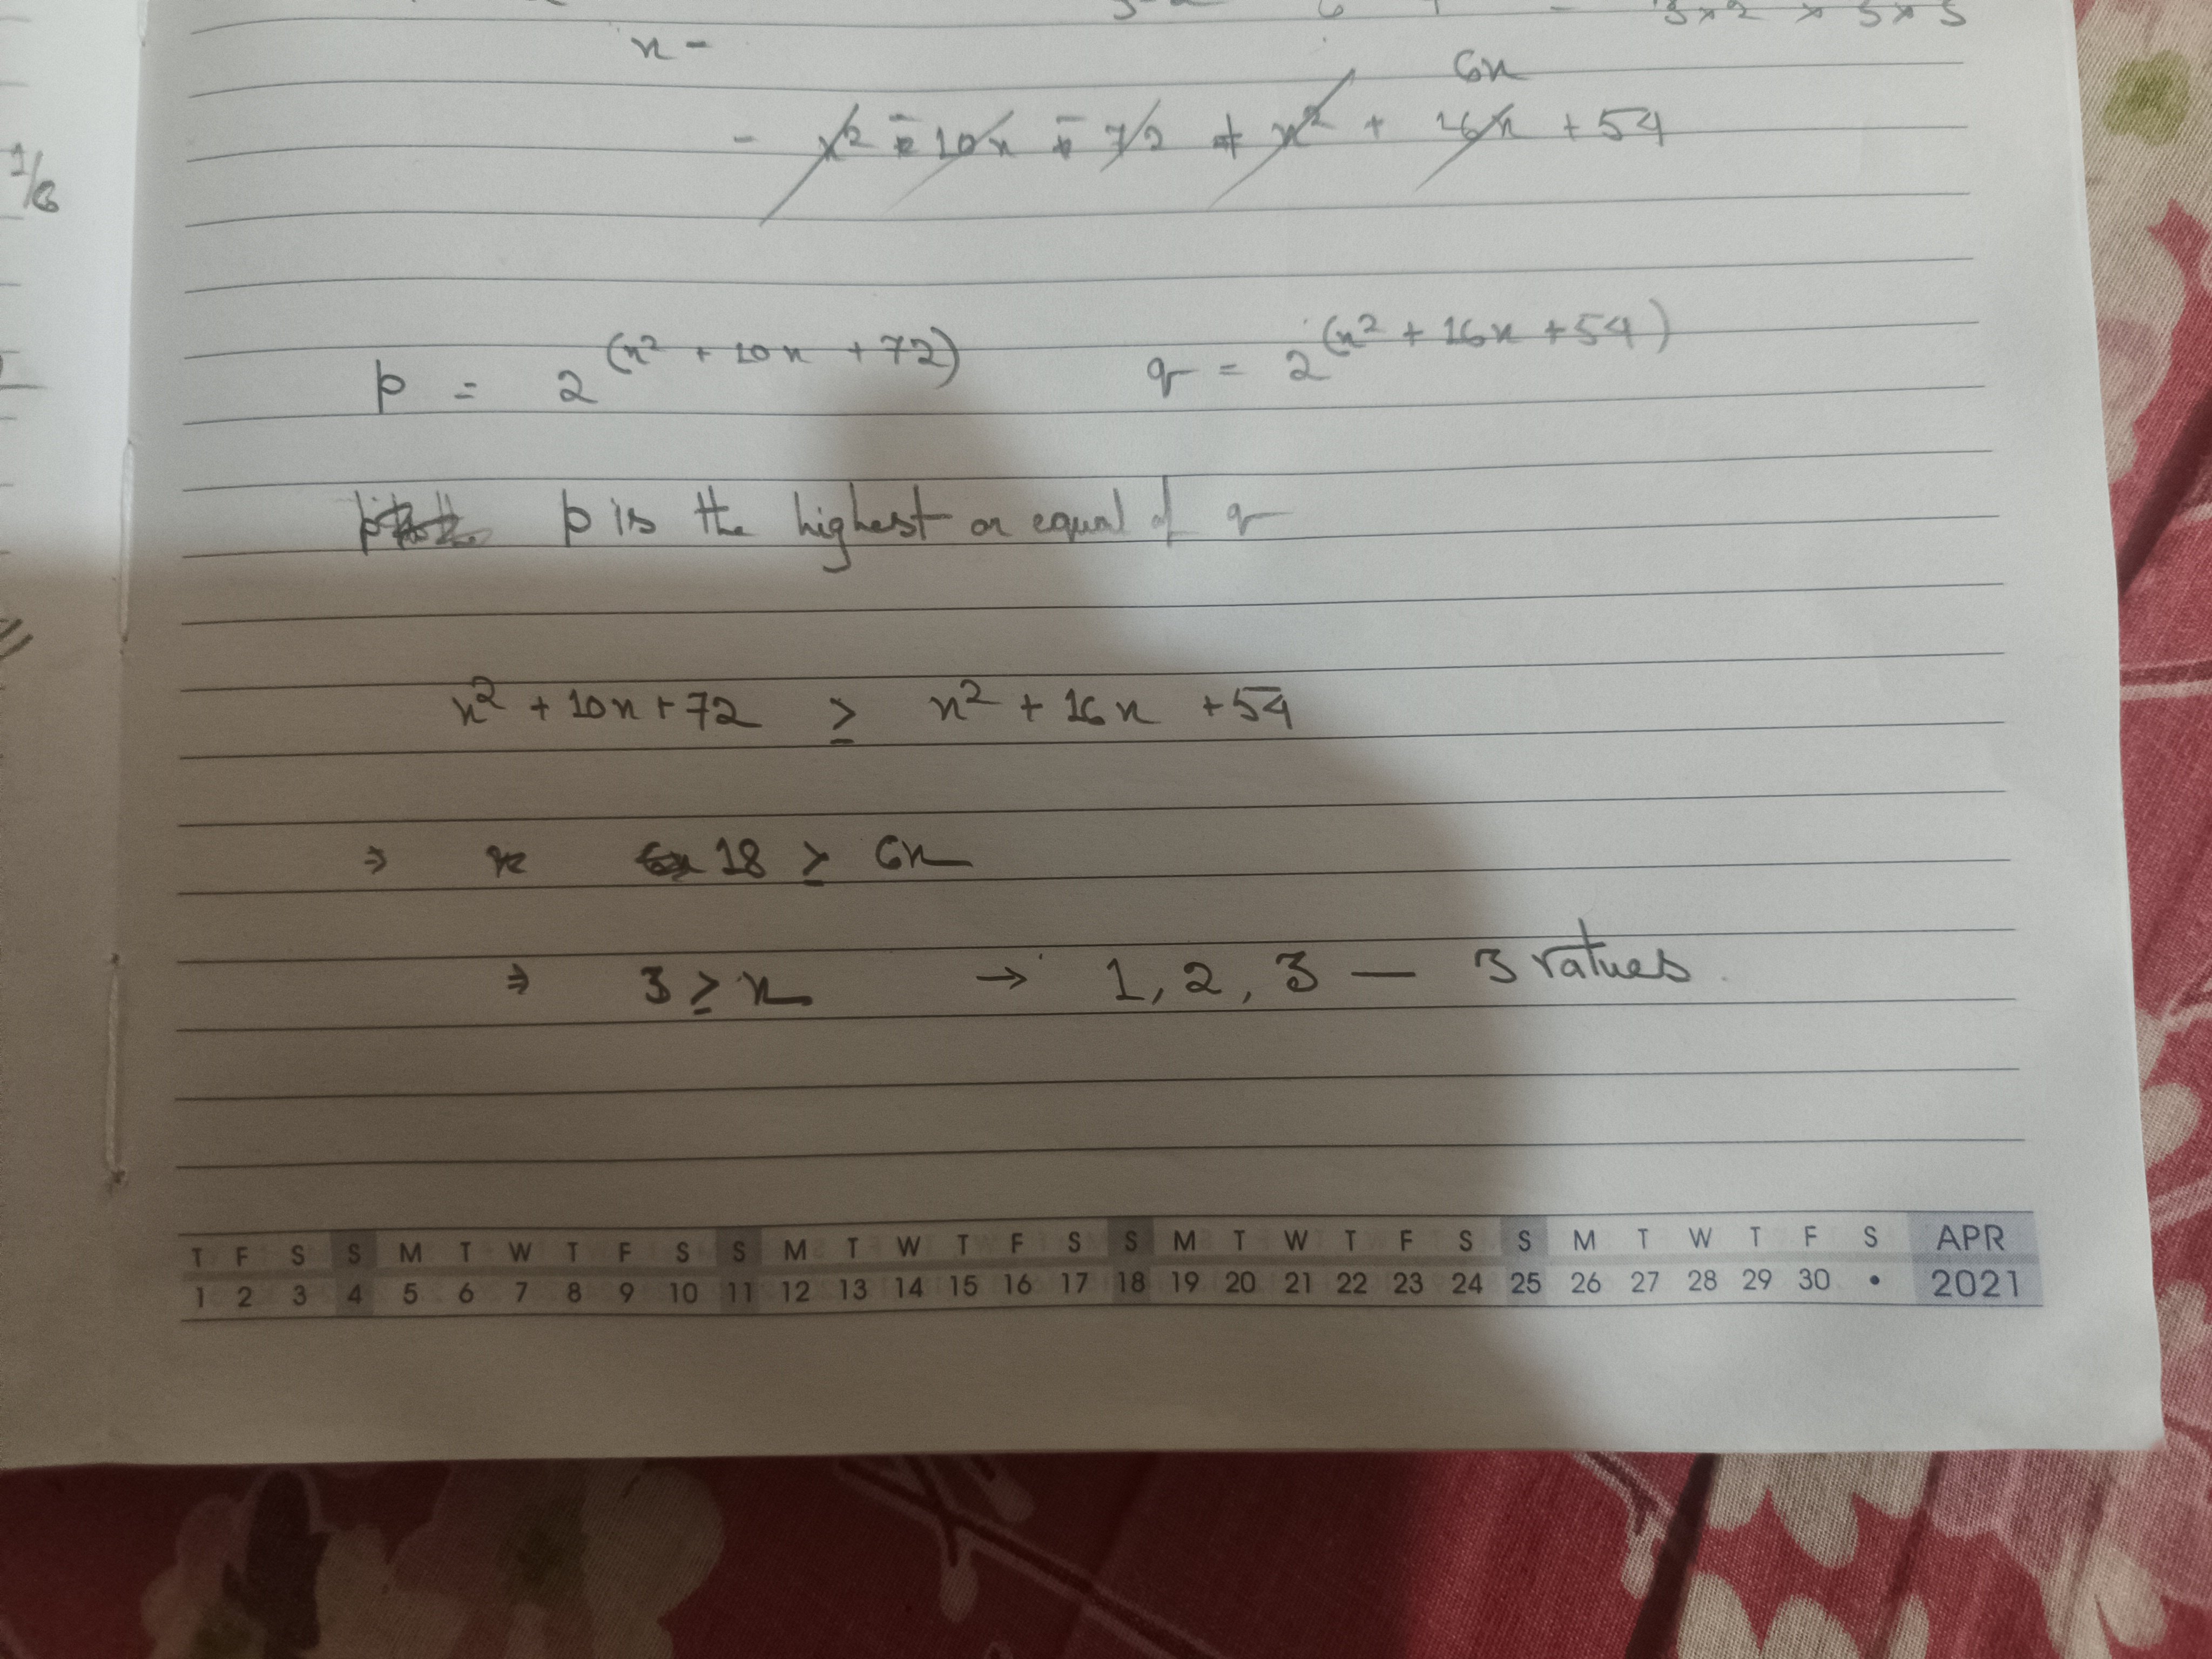 3x2 x 5x5
n -
6n
1/6
- n2 - 10n - 72 + n2 + 16n + 54
p = 2^(n2 + 10n + 72) q = 2^(n2 + 16n + 54)
p is the highest or equal of q
n2 + 10n + 72 ≥ n2 + 16n + 54
⇒ 18 ≥ 6n
⇒ 3 ≥ n → 1, 2, 3 — 3 values.
T F S S M T W T F S S M T W T F S S M T W T F S S M T W T F S APR
1 2 3 4 5 6 7 8 9 10 11 12 13 14 15 16 17 18 19 20 21 22 23 24 25 26 27 28 29 30 • 2021